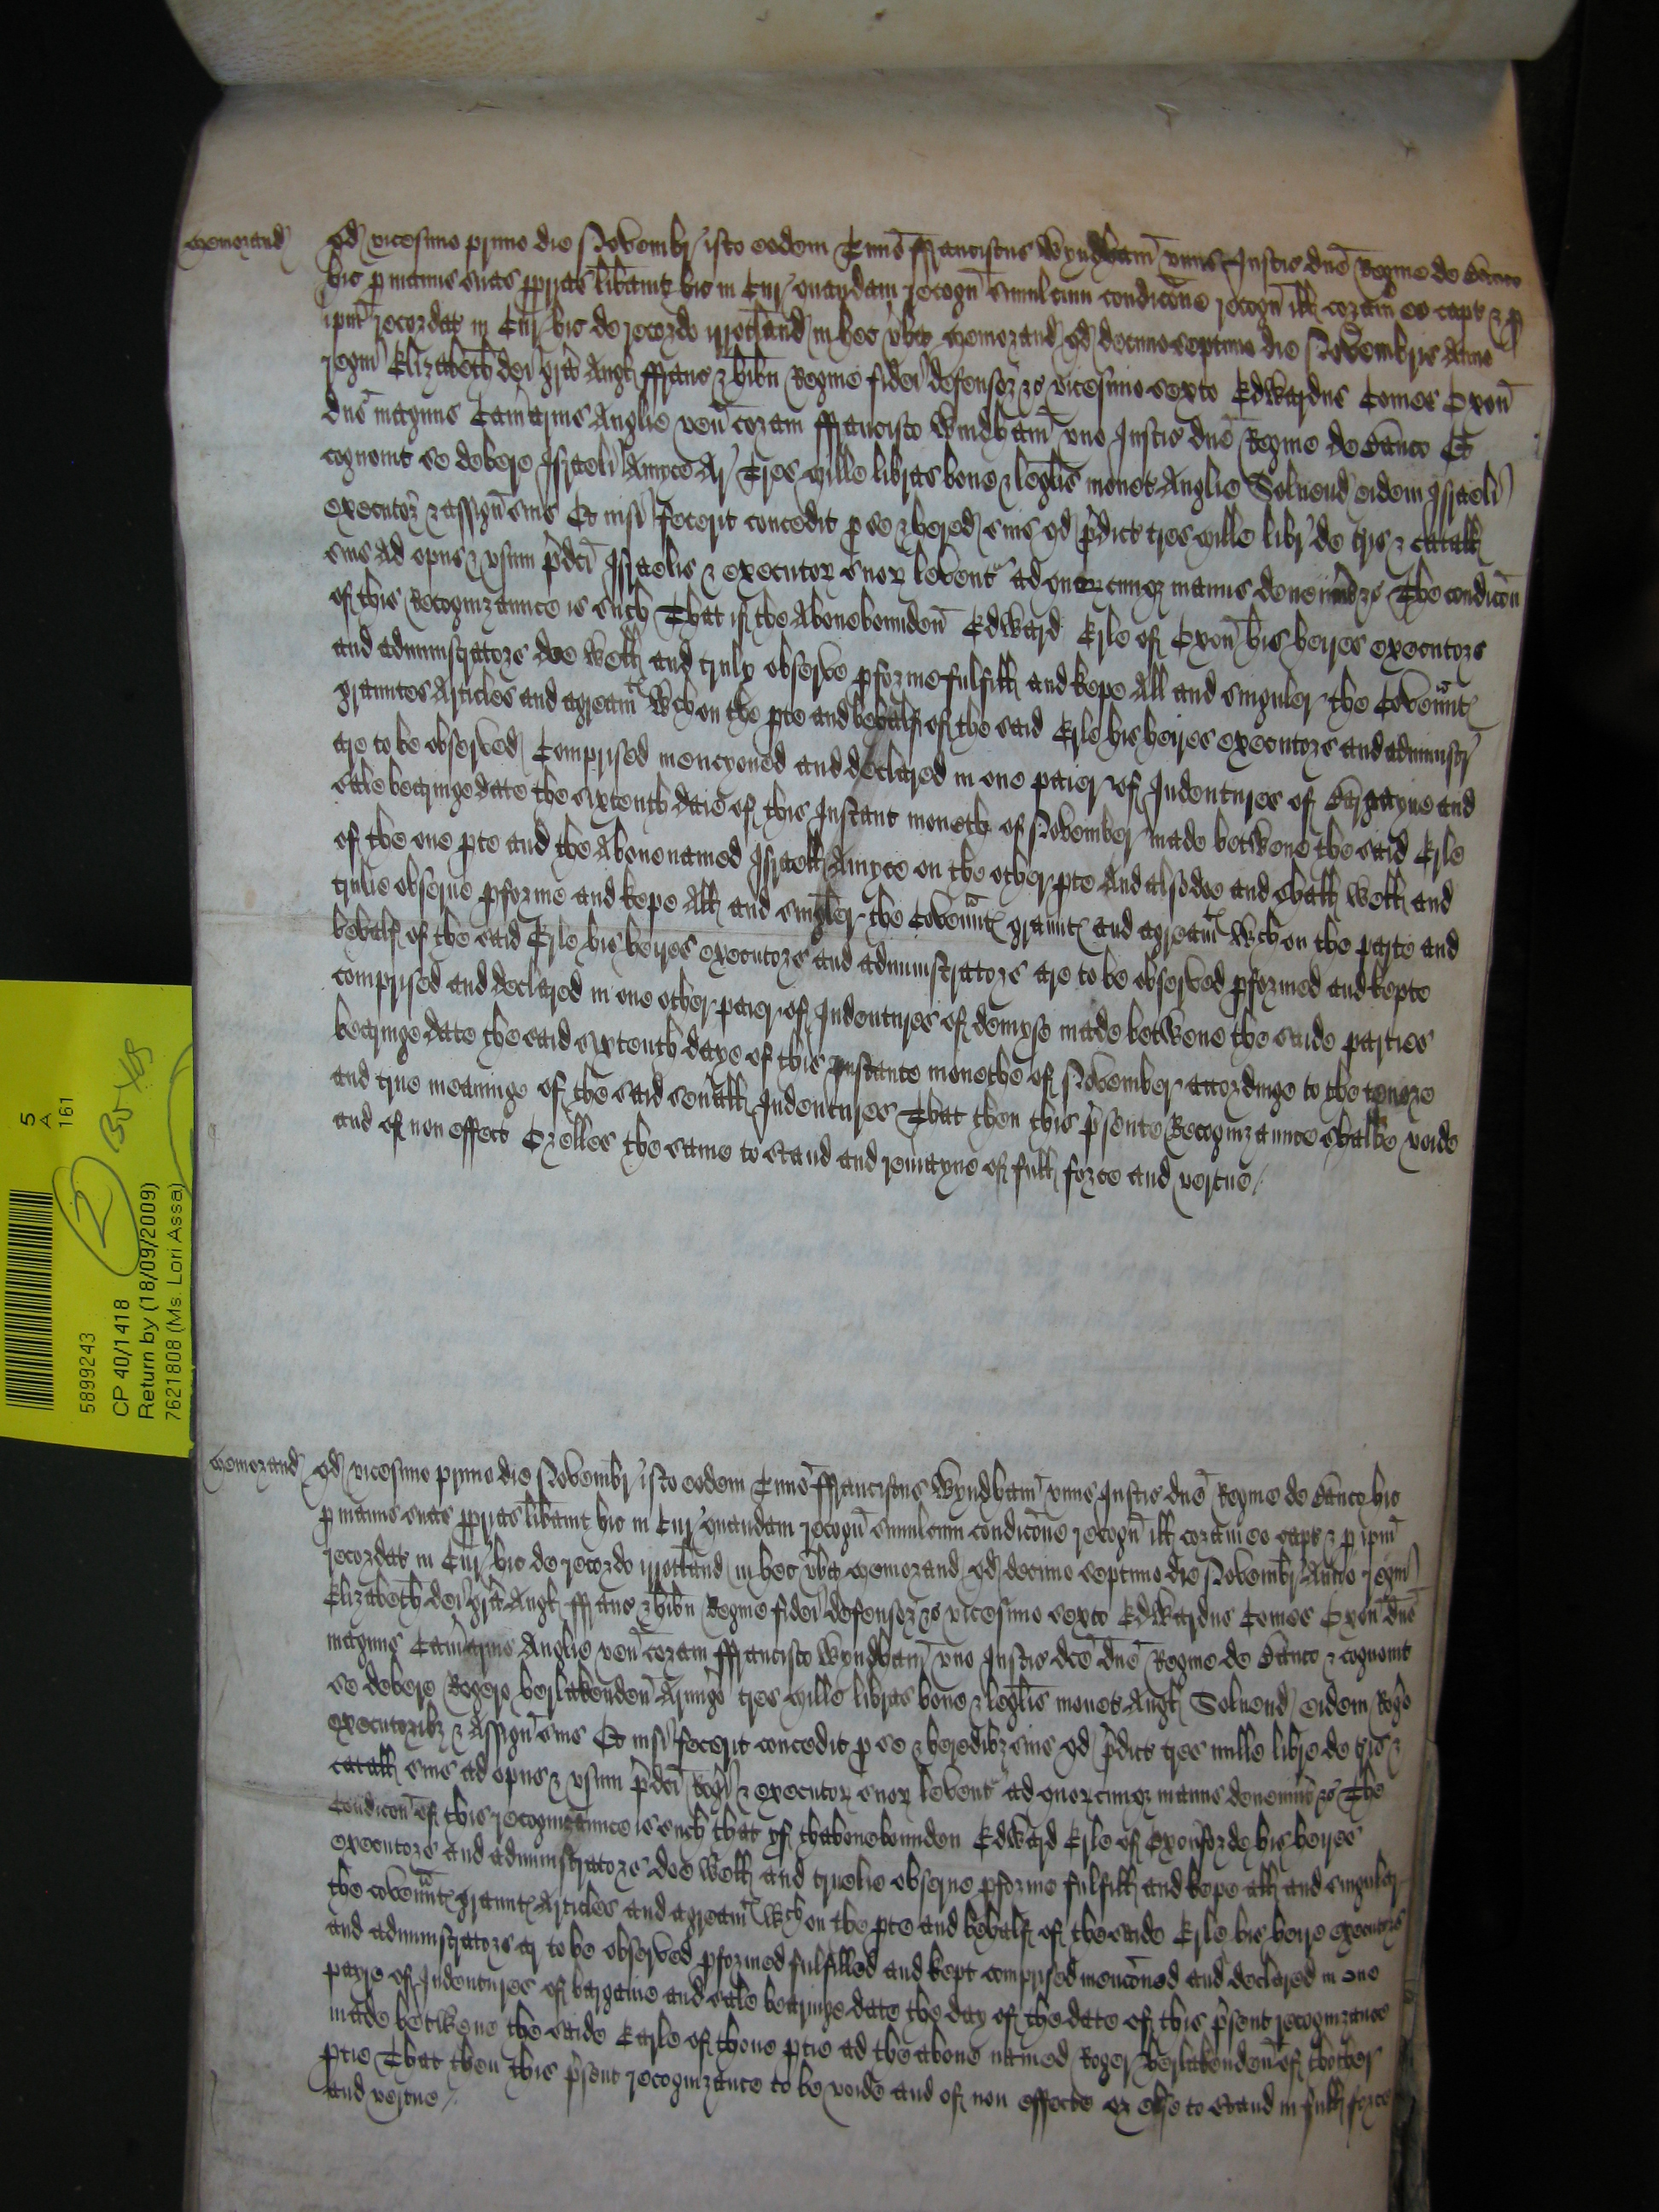 Memorand qd vicesimo primo die Novembr isto eodem Tmno ffranciscus Wyndham vnus Justic dne Regine de Banco
hic p manus suas pprias libauit hic in Cur quandam recogn simulcum condicone recogn ill coram eo capt & p
ipm recordat in Cur hic de recordo irrotland in hec vba Memorand qd decimo septimo die Novembris Anno
regni Elizabeth dei gra Angl ffranc & hibn Regine fidei defensor &c vicesimo sexto Edwardus Comes Oxon
dns magnus Camarius Anglie ven coram ffrancisco Windham vno Justic dne Regine de Banco Et
cognouit se debere Israeli Amyce Ar Tres mille libras bone & legalis monet Anglie Soluend eidem Israeli
executor & assign suis Et nisi fecerit concedit p se & hered suis qd pdict tres mille libr de tris & catall
suis Ad opus & vsum pdci Israelis & executor suor levent ad quorcumqz manus deuenind &c The condicon
of this Recognizaunce is such That if the Abouebounden Edward Erle of Oxon his heires executors
and administrators doe well and truly observe pforme fulfill and kepe All and singuler the Covennt
grauntes Articles and agreamt wch on the pte and behalf of the said Erle his heires executors and administr
are to be observed Comprised mencyoned and declared in one paier of Indentures of Bargayne and
sale bearinge date the sixtenth daie of this Instant moneth of November made betwene the said Erle
of the one pte and the Abouenamed Israell Amyce on the other pte And also doe and shall well and
trulie obserue pforme and kepe All and singler the Covennt graunt and agreamt wch on the parte and
behalf of the said Erle his heires executors and administrators are to be observed pformed and kepte
comprised and declared in one other paier of Indentures of demyse made betwene the saide parties
bearinge date the said sixtenth daye of this Instante monethe of November accordinge to the tenore
and true meaninge of the said seuall Indentures That then this psente Recognizaunce shalbe voide
and of non effect Orelles the same to stand and remayne of full force and vertue
Memorand qd vicesimo primo die Novembr isto eodem Tmno ffranciscus Wyndham vnus Justic dne Regine de Banco hic
p manus suas pprias libauit hic in Cur quandam recogn simulcum condicone recogn ill coram eo capt & p ipm
recordat in Cur hic de recordo irrotland in hec vba Memorand qd decimo septimo die Novembr Anno regni
Elizabeth dei gra Angl ffranc & hibn Regine fidei defensor &c vicesimo sexto Edwardus Comes Oxon dns
magnus Camarius Anglie ven coram ffrancisco Wyndham vno Justic dce dne Regine de Banco & cognouit
se debere Rogero harlakenden Armigo tres mille libras bone & legalis monet Angl Soluend eidem Rogo
executoribz & Assign suis Et nisi fecerit concedit p se & heredibz suis qd pdict tres mille libre de tris &
catall suis ad opus & vsum pdci Rogi & executor suor levent ad quorcumqz manus deuenint &c The
Condicon of this recognizaunce is such that yf thabouebounden Edward Erle of Oxonforde his heires
executors and administrators doe well and truelie obserue pforme fulfill and kepe all and singuler
the covennt graunt Articles and agreamt wch on the pte and behalf of the saide Erle his heire executors
and administrators ar to be observed pformed fulfilled and kept comprised menconed and declared in one
payre of Indentures of bargaine and sale bearinge date the day of the date of this psent recognizance
made betwene the saide Earle of thone ptie ad the aboue named Roger harlakenden of thother
ptie That then this psent recognizance to be voide and of non effecte or else to stand in full force
and vertue
5
A
161
5899243
2
CP 40/1418
Return by (18/09/2009)
7621808 (Ms. Lori Assa)